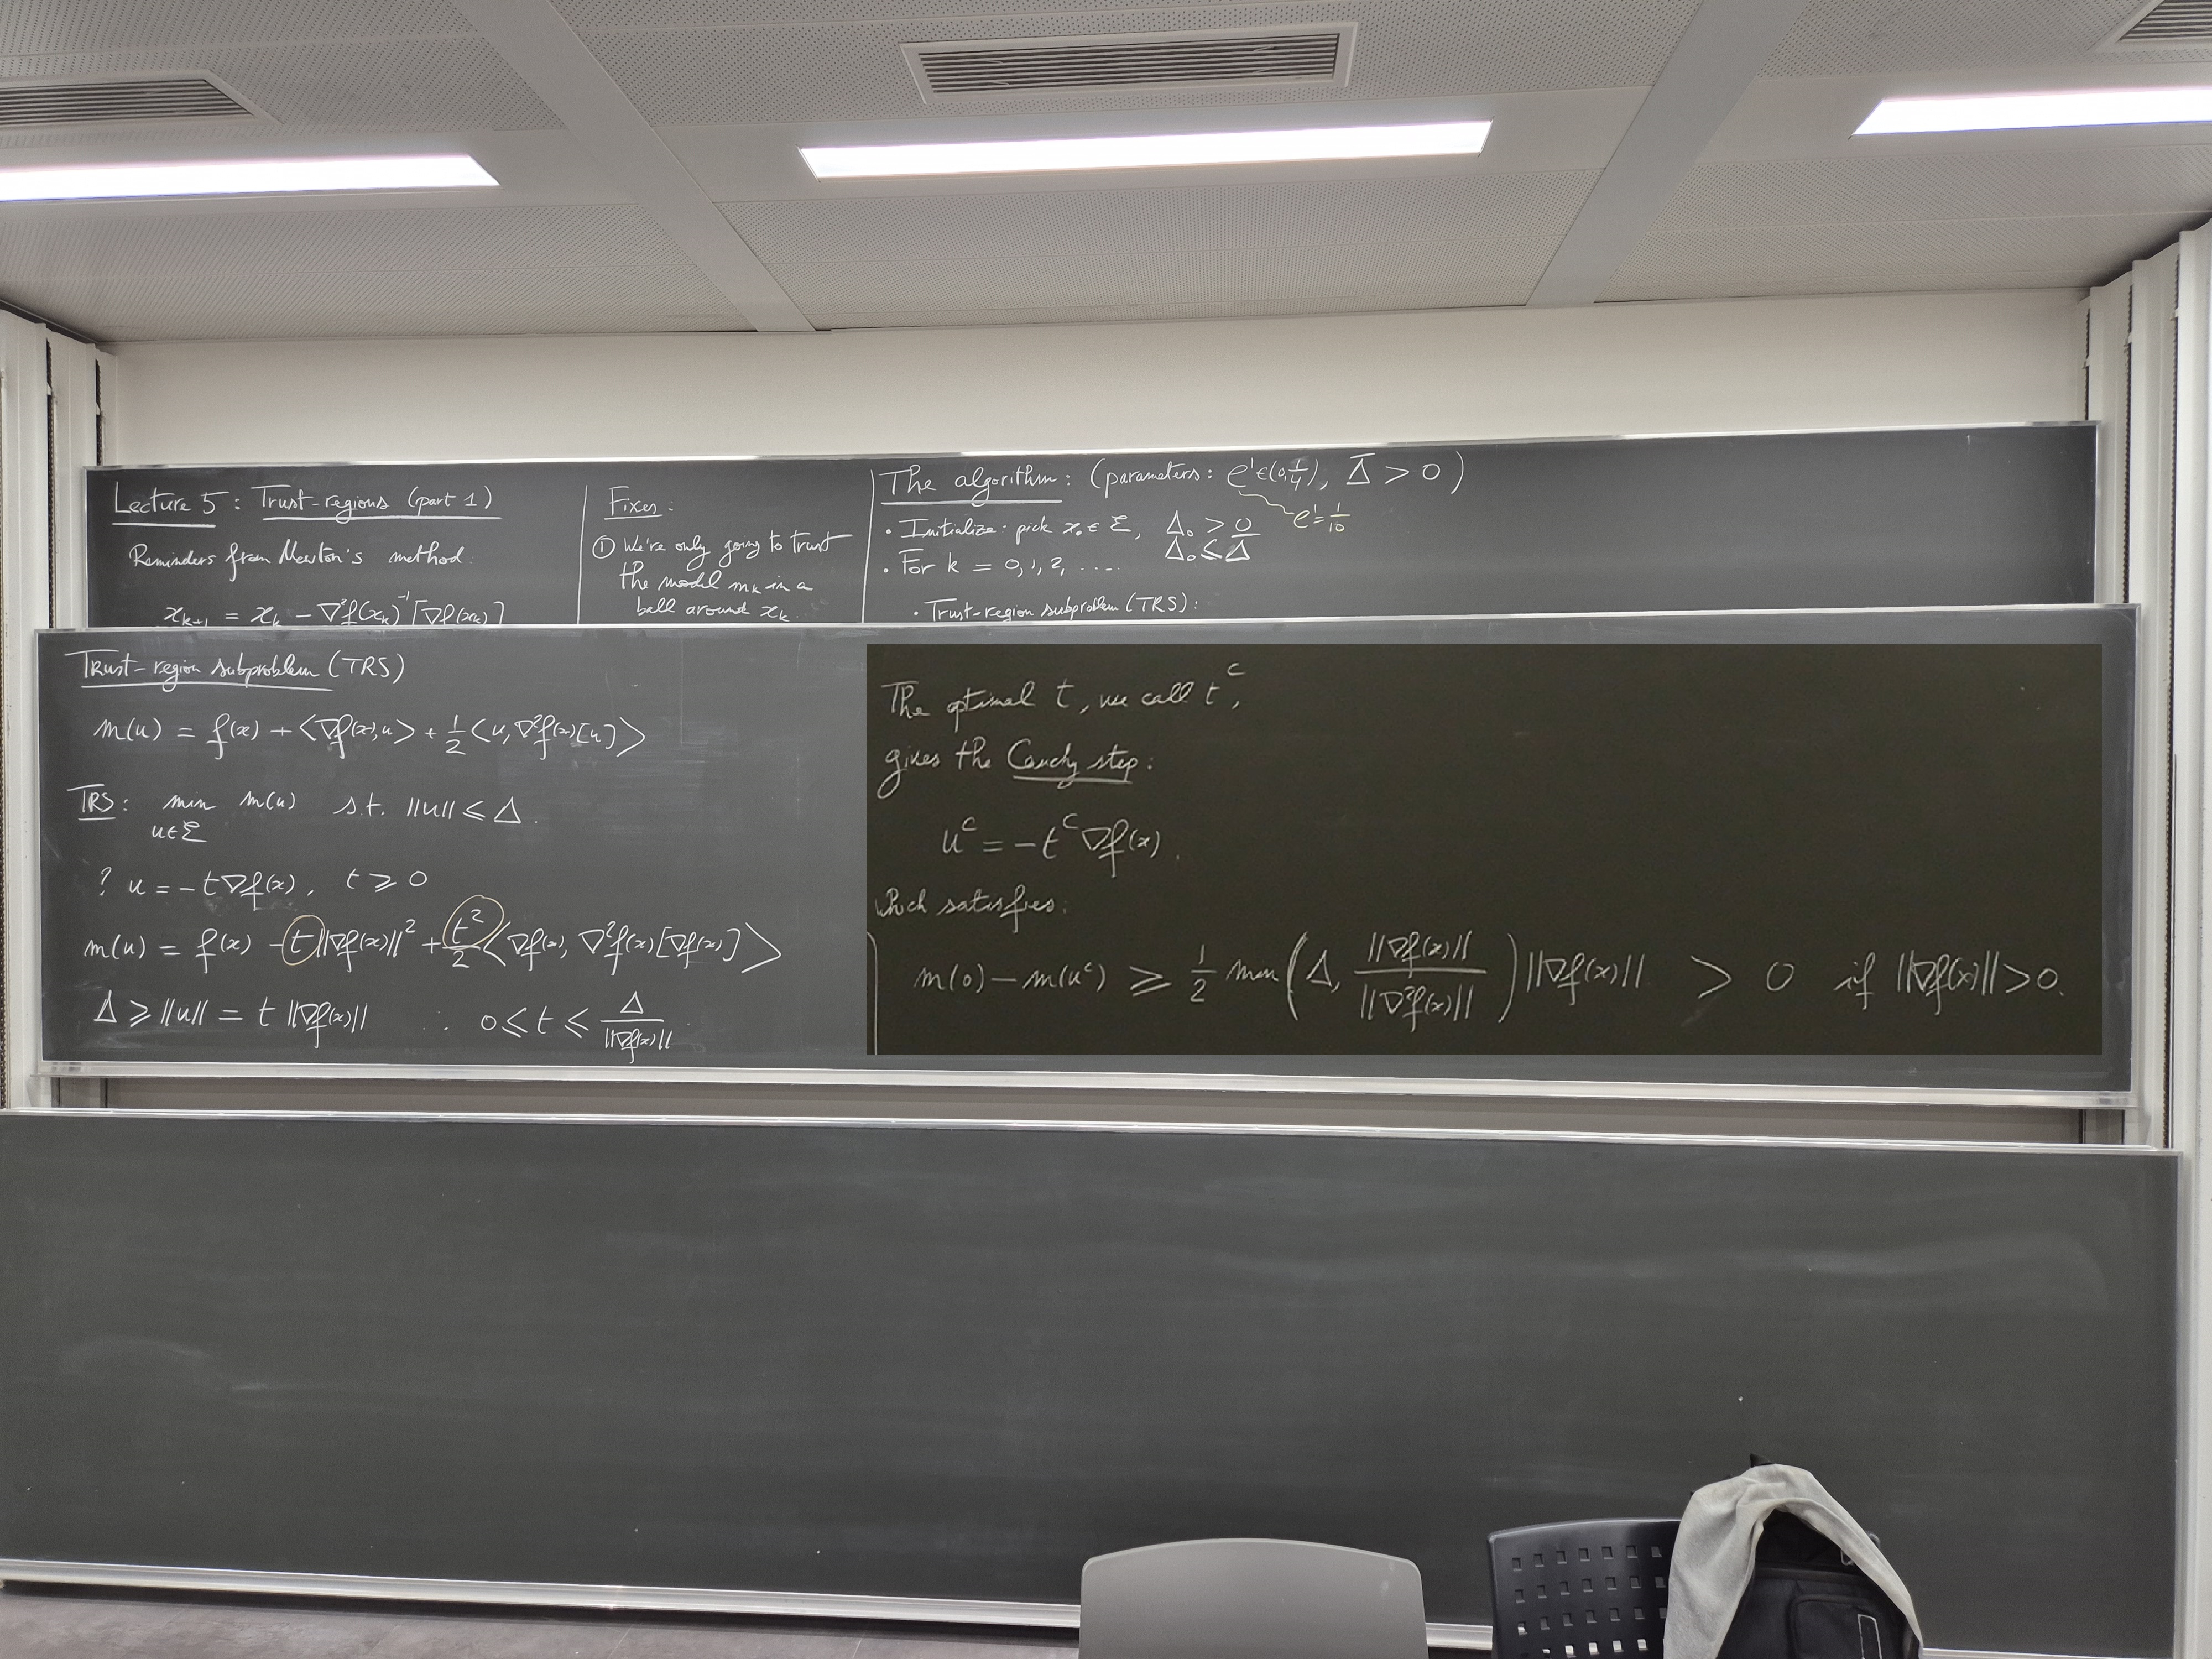 Lecture 5 : Trust-regions (part 1)
Reminders from Newton's method.
x_{k+1} = x_k − ∇²f(x_k)^{-1}[∇f(x_k)]
Fixes:
① We're only going to trust
the model m_k in a
ball around x_k.
The algorithm: (parameters: ρ' ∈ (0, 1/4), Δ̄ > 0)
ρ' = 1/10
• Initialize: pick x_0 ∈ ℰ, Δ_0 > 0
Δ_0 ≤ Δ̄
• For k = 0, 1, 2, ....
• Trust-region subproblem (TRS):
Trust-region subproblem (TRS)
m(u) = f(x) + <∇f(x), u> + 1/2 <u, ∇²f(x)[u]>
TRS: min m(u) s.t. ||u|| ≤ Δ.
u∈ℰ
? u = −t∇f(x), t ≥ 0
m(u) = f(x) − t||∇f(x)||² + t²/2 <∇f(x), ∇²f(x)[∇f(x)]>
Δ ≥ ||u|| = t ||∇f(x)|| ∴ 0 ≤ t ≤ Δ/||∇f(x)||
The optimal t, we call t^c,
gives the Cauchy step:
u^c = −t^c ∇f(x).
which satisfies:
m(0) − m(u^c) ≥ 1/2 min(Δ, ||∇f(x)||/||∇²f(x)||) ||∇f(x)|| > 0 if ||∇f(x)|| > 0.